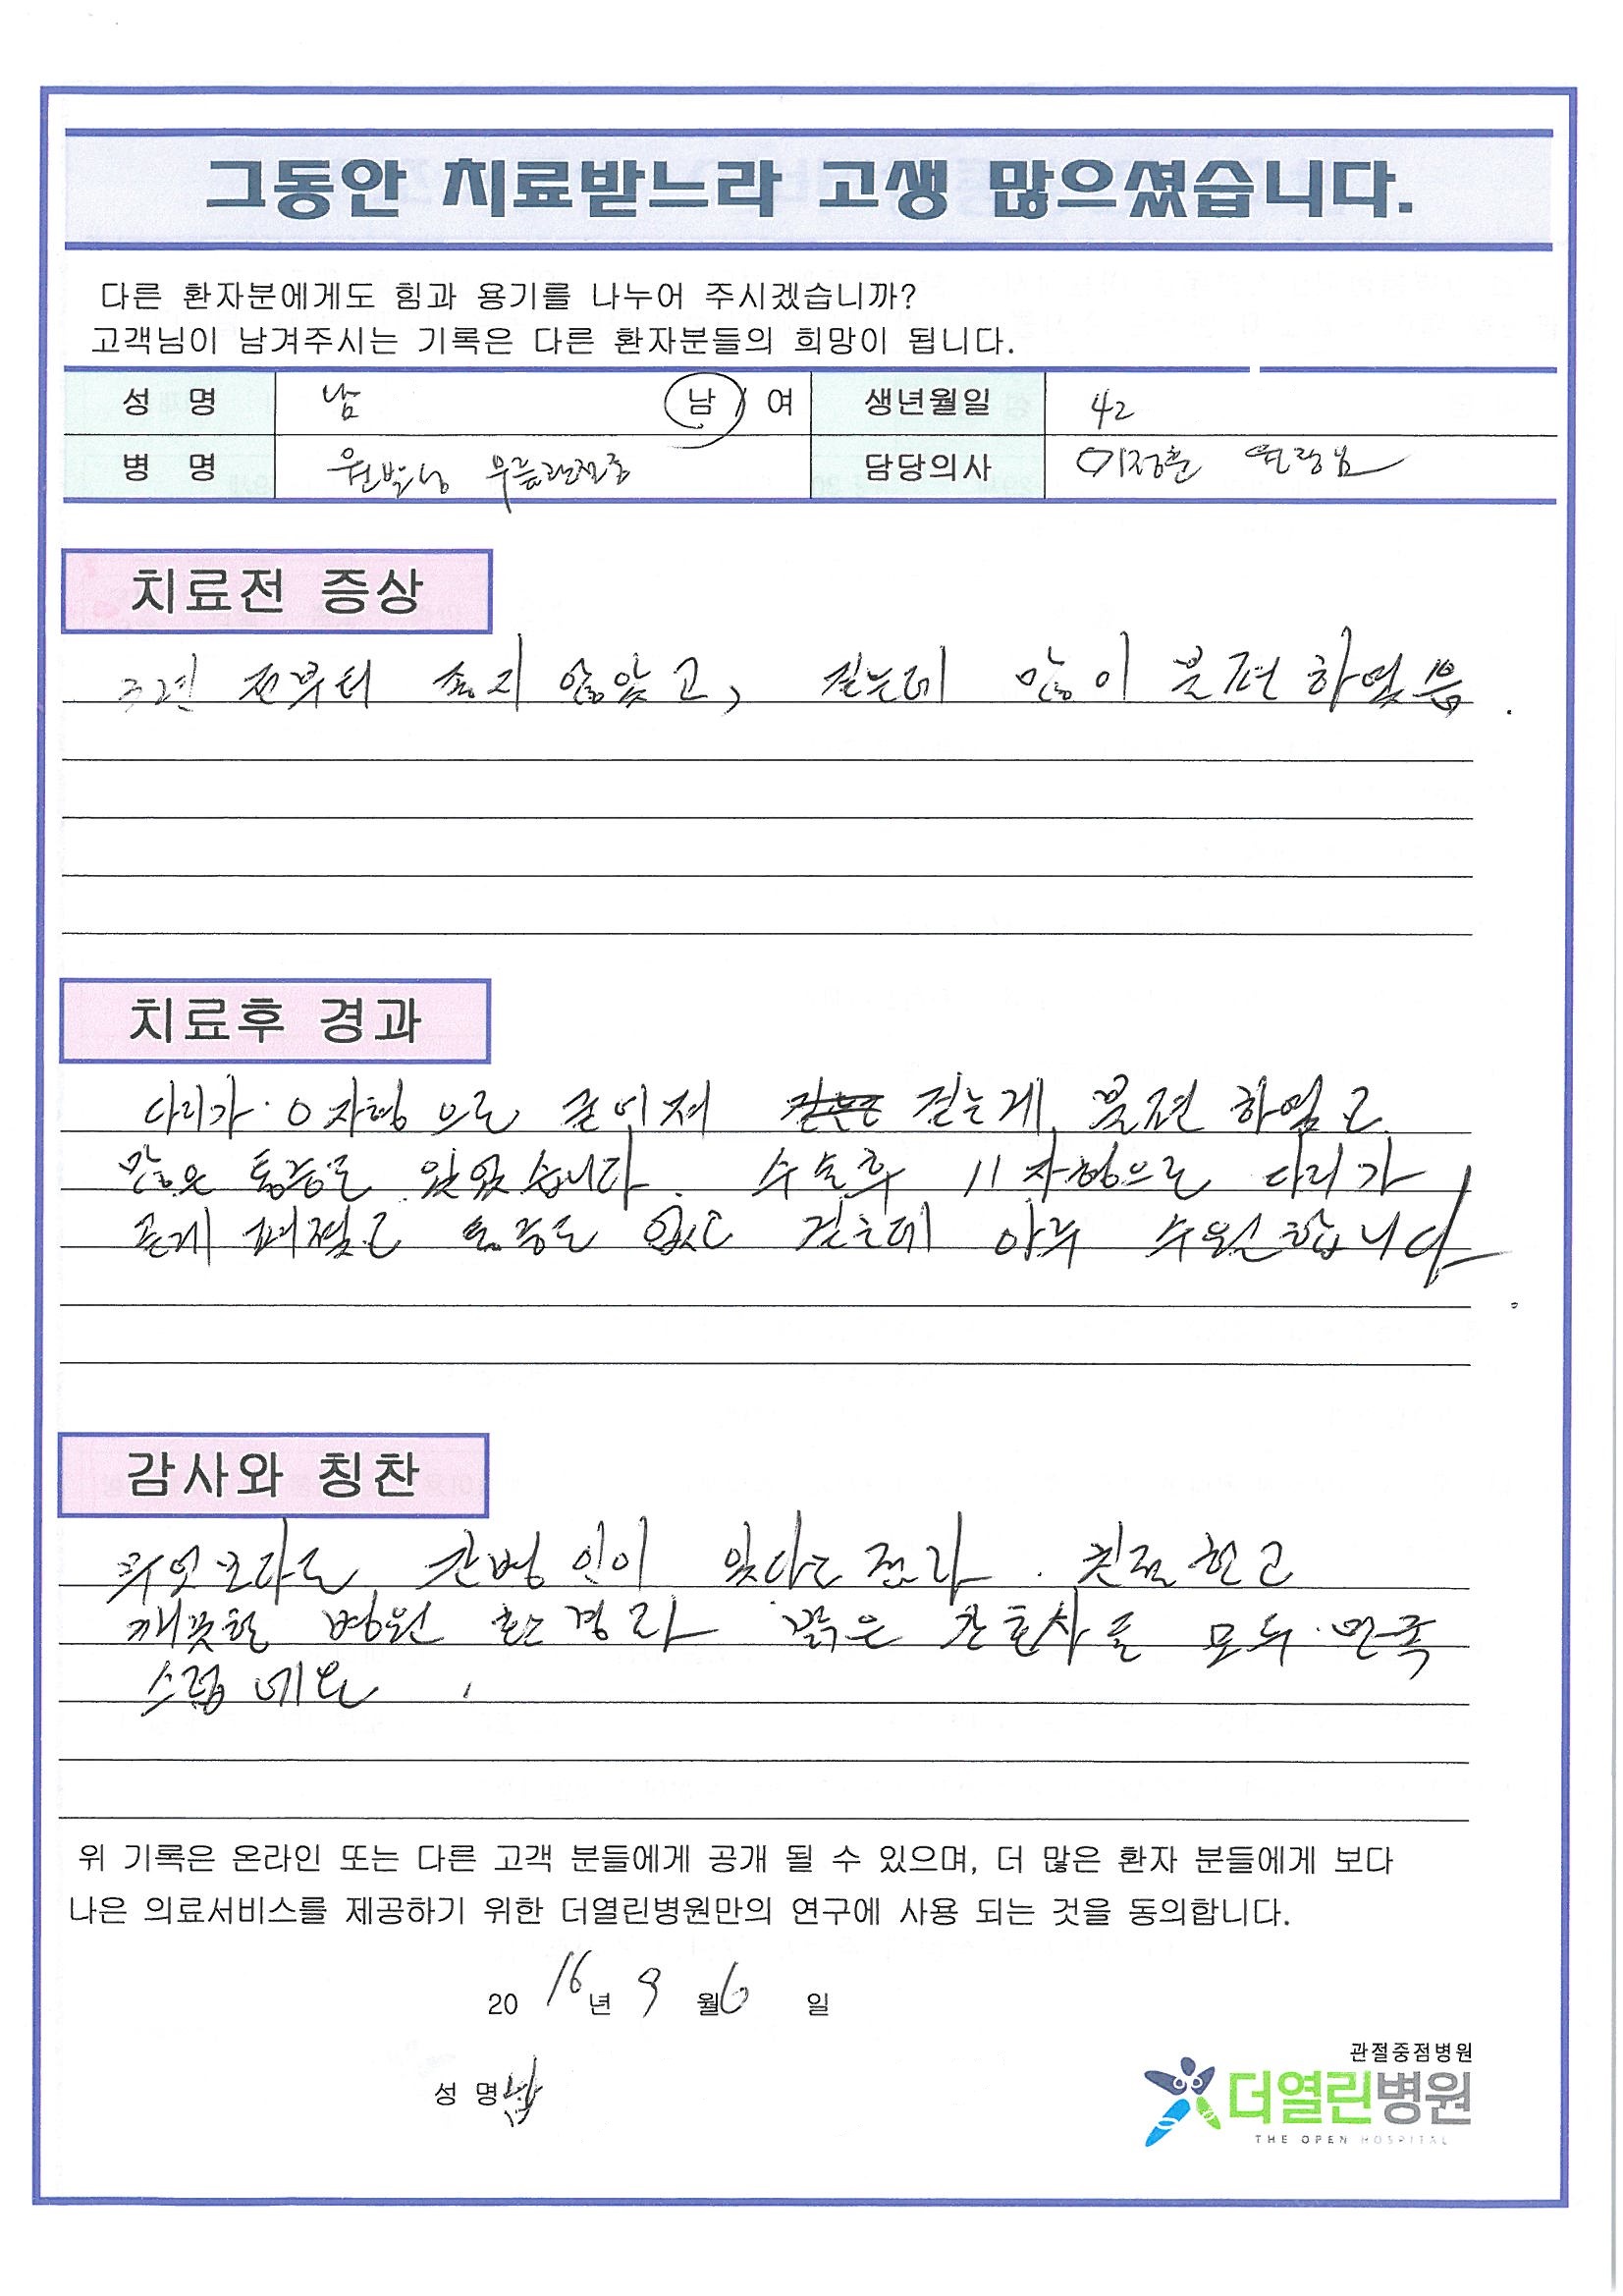 그동안 치료받느라 고생 많으셨습니다.
다른 환자분에게도 힘과 용기를 나누어 주시겠습니까?
고객님이 남겨주시는 기록은 다른 환자분들의 희망이 됩니다.
성 명 남 남 / 여 생년월일 42
병 명 원발성 무릎관절증 담당의사 이정훈 원장님
치료전 증상
3년 전부터 좋지 않았고, 걷는데 많이 불편하였음.
치료후 경과
다리가 O자형으로 굽어져 걷는게 불편하였고
많은 통증도 있었습니다. 수술후 11자형으로 다리가
곧게 펴졌고 통증도 없고 걷는데 아주 수월합니다.
감사와 칭찬
무엇보다도, 간병인이 있다는 점과. 친절하고
깨끗한 병원 환경과 밝은 간호사들 모두 만족
스럽네요.
위 기록은 온라인 또는 다른 고객 분들에게 공개 될 수 있으며, 더 많은 환자 분들에게 보다
나은 의료서비스를 제공하기 위한 더열린병원만의 연구에 사용 되는 것을 동의합니다.
2016년 9월 6일
성 명 남
관절중점병원
더열린병원
THE OPEN HOSPITAL